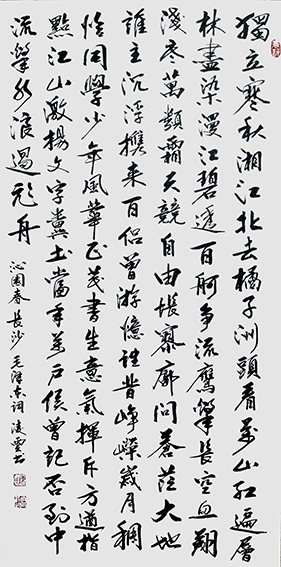 獨立寒秋湘江北去橘子洲頭看萬山紅遍層
林盡染漫江碧透百舸争流鷹擊長空魚翔
淺底萬類霜天競自由悵寥廓問蒼茫大地
誰主沉浮携来百侣曾游憶往昔崢嶸歲月稠
恰同學少年風華正茂書生意氣揮斥方遒指
點江山激揚文字糞土當年萬户侯曾記否到中
流擊水浪遏飛舟
沁園春長沙毛澤東詞凌雲书